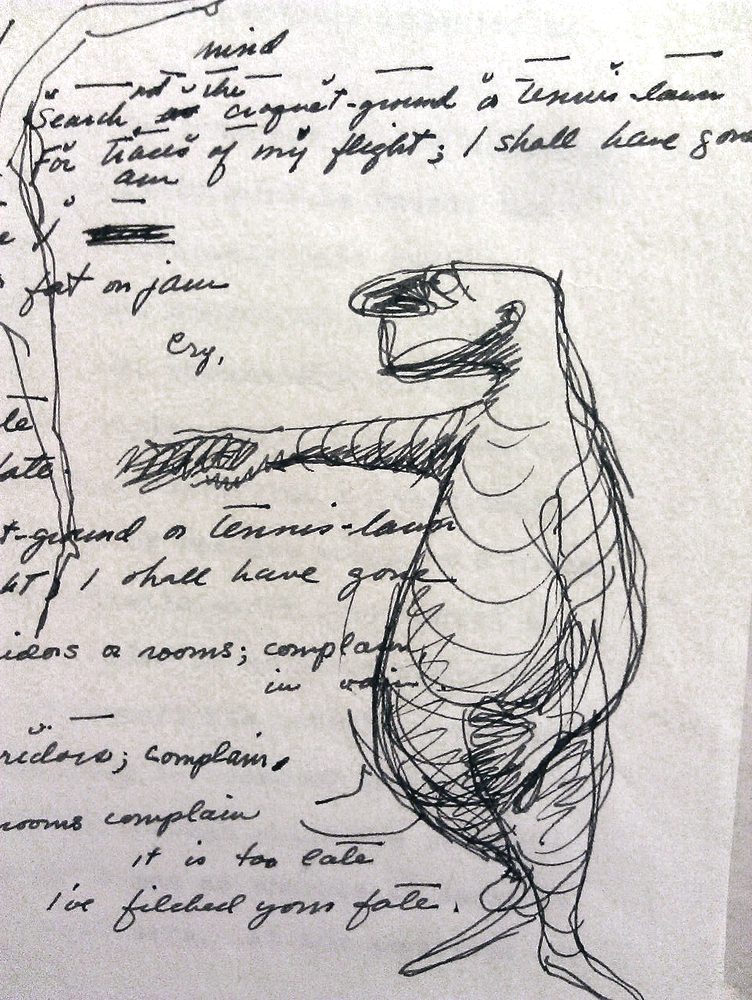 mind
not the
Search croquet-ground or tennis-lawn
For traces of my flight; I shall have gone
am
I
fat on jam
Cry,
le
late
t-ground or tennis-lawn
ht; I shall have gone
idors or rooms; complain,
in vain.
ridors; complain,
rooms complain
it is too late
I've filched your fate.